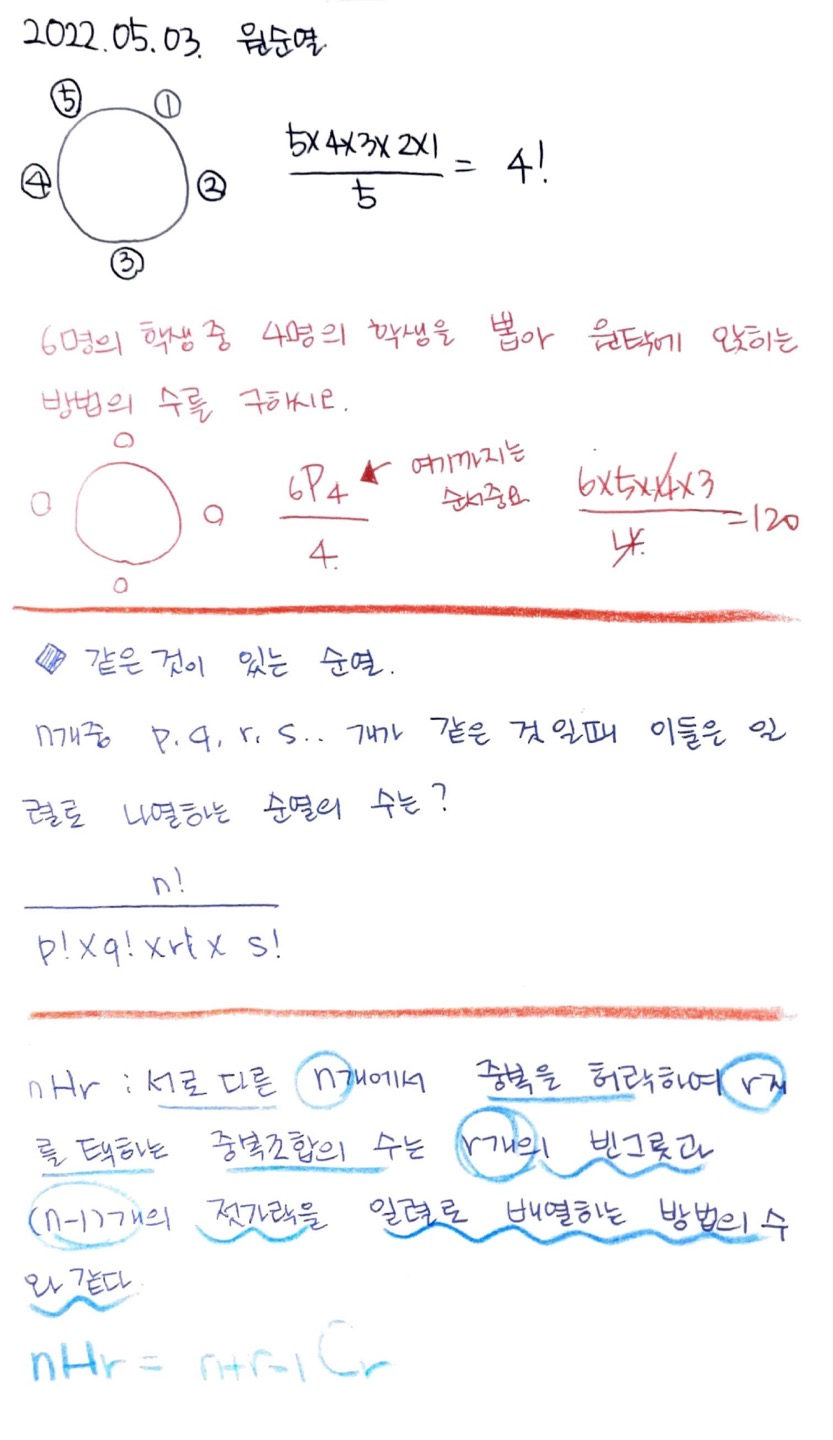 2022.05.03. 원순열
⑤ ①
④ ②
③
5×4×3×2×1
5
= 4!
6명의 학생 중 4명의 학생을 뽑아 원탁에 앉히는
방법의 수를 구하시오.
6P4
4.
여기까지는
순서중요
6×5×4×3
4.
=120
같은 것이 있는 순열.
n개중 p. q, r, s.. 개가 같은 것 일때 이들은 일
렬로 나열하는 순열의 수는?
n!
p!×q!×r!× s!
nHr : 서로 다른 n개에서 중복을 허락하여 r개
를 택하는 중복조합의 수는 r개의 빈그릇과
(n-1)개의 젓가락을 일렬로 배열하는 방법의 수
와 같다.
nHr = n+r-1Cr